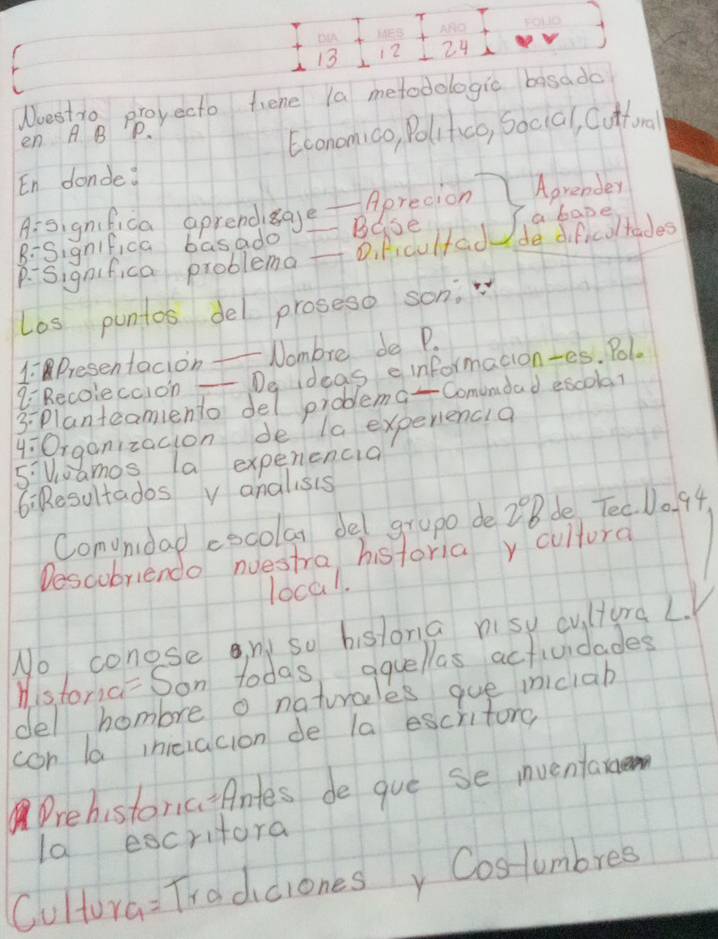 DIA MES AÑO FOLIO
13 12 24
Nuestro proyecto tiene la metodologic basada
en A B P.
Economico, Politico, Social, Cultural
En donde:
A:-significa aprendizaje — Aprecion
B:-Significa basado — Base
P:-Significa problema — Dificultad
Aprender
a base
de dificultades
Los puntos del proseso son:
1:- Presentación — Nombre de P.
2:- Recoleccion — De ideas e informacion-es. Pol.
3:- Planteamiento del problema — Comunidad escolar
4:- Organizacion de la experiencia
5:- Vivamos la experiencia
6:- Resultados y analisis
Comunidad escolar del grupo de 2°B de Tec. No. 94,
Descubriendo nuestra historia y cultura
local.
No conose ni su historia ni su cultura L.
Historia = Son todas aquellas actividades
del hombre o naturales que iniciab
con la iniciacion de la escritura
Prehistoria = Antes de que se inventara
la escritura
Cultura = Tradiciones y Costumbres